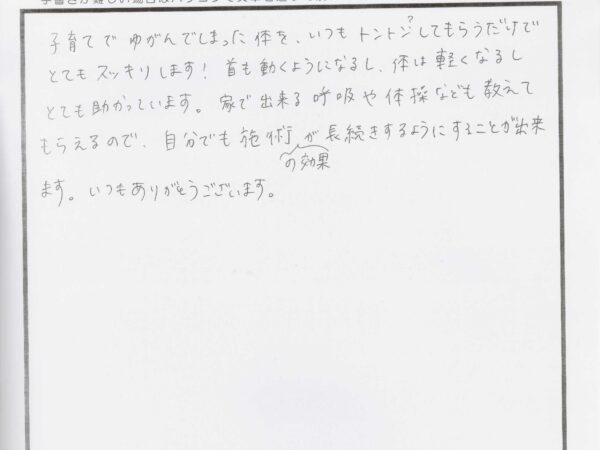 子育てで ゆがんでしまった 体を、いつも トントン?してもらうだけで
とても スッキリします! 首も動くようになるし、体は 軽く なるし
とても 助かっています。 家で 出来る 呼吸や 体操なども 教えて
もらえるので、自分でも 施術の効果が 長続きするようにすることが出来
ます。いつもありがとうございます。